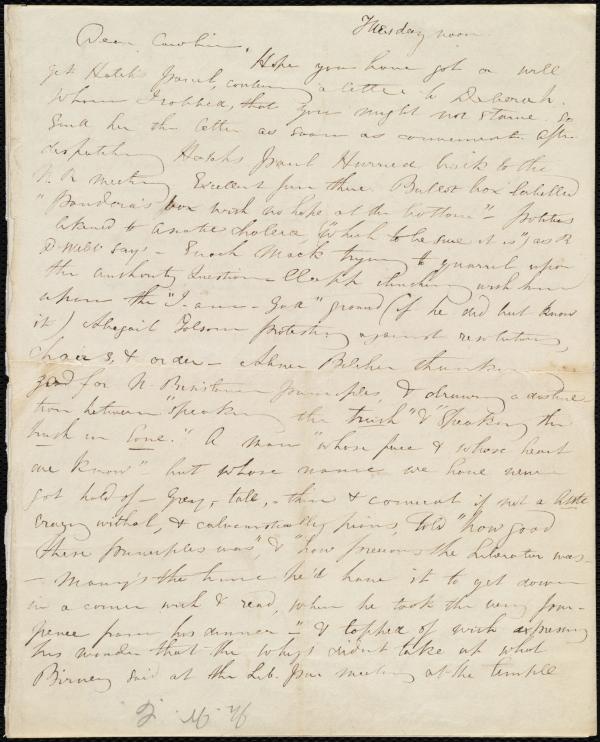 Tuesday noon.
Dear Caroline,
Hope you have got or will
get Hatch's parcel, containing a letter to Deborah.
whom I robbed, that you might not starve. So
send her the letter as soon as convenient. After
dispatching Hatch's parcel Hurried back to the
N. R meeting Excellent fun there. Ballot box labelled
"Pandora's box with no hope at the bottom" - politics
likened to asiatic cholera, "which to be sure it is", as R
says - Enoch Mack trying to quarrel upon
the authority question - Clapp clinching with him
upon the "I am - God" ground (if he did but know
it) Abigail Folsom protesting against resolutions,
chairs, & order - Abner Belcher thanking
god for N- Resistance principles, & drawing a distinc-
tion between "speaking the truth" & "speaking the
truth in Love." A man "whose face & whose heart
we know" but whose name we have never
got hold of - Grey, tall, thin & comical if not a little
crazy withal, & calvinistically pious, told "how good
these principles was", & "how precious the Liberator was -
- Many's the time he'd have it to get down
in a corner with & read, when he took the very four-
pence from his dinner" - & topped of with expressing
his wonder that the whigs didn't take up what
Birney said at the Lib. par meeting at the temple